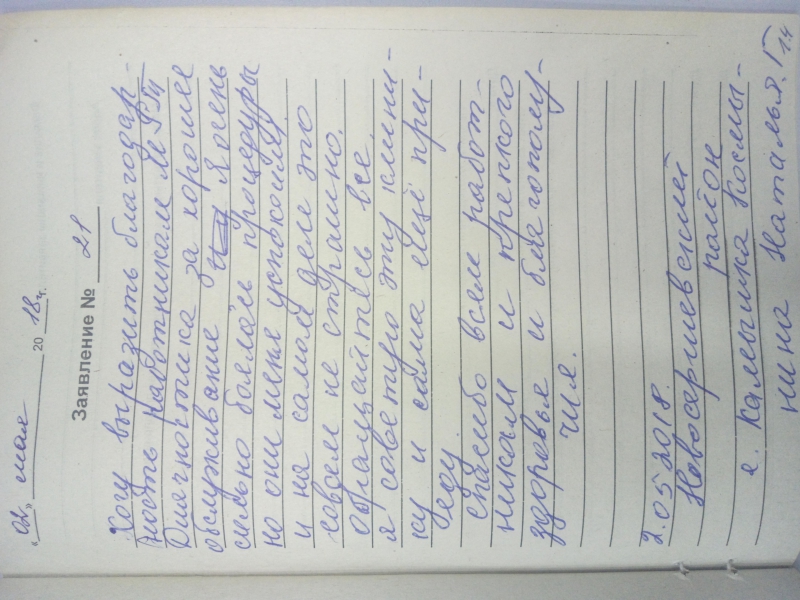 "02" мая 2018 г.
Заявление № 21
Хочу выразить благодар-
ность работникам МРТ
Диагностика за хорошее
обслуживание Я очень
сильно боялась процедуры
но они меня успокоили
и на самом деле это
совсем не страшно.
Обращайтесь все.
я советую эту клини-
ку и сама ещё при-
еду.
Спасибо всем работ-
никам и крепкого
здоровья и благополу-
чия.
2.05.2018.
Новосергиевский
район
Космы-
нина Наталья.